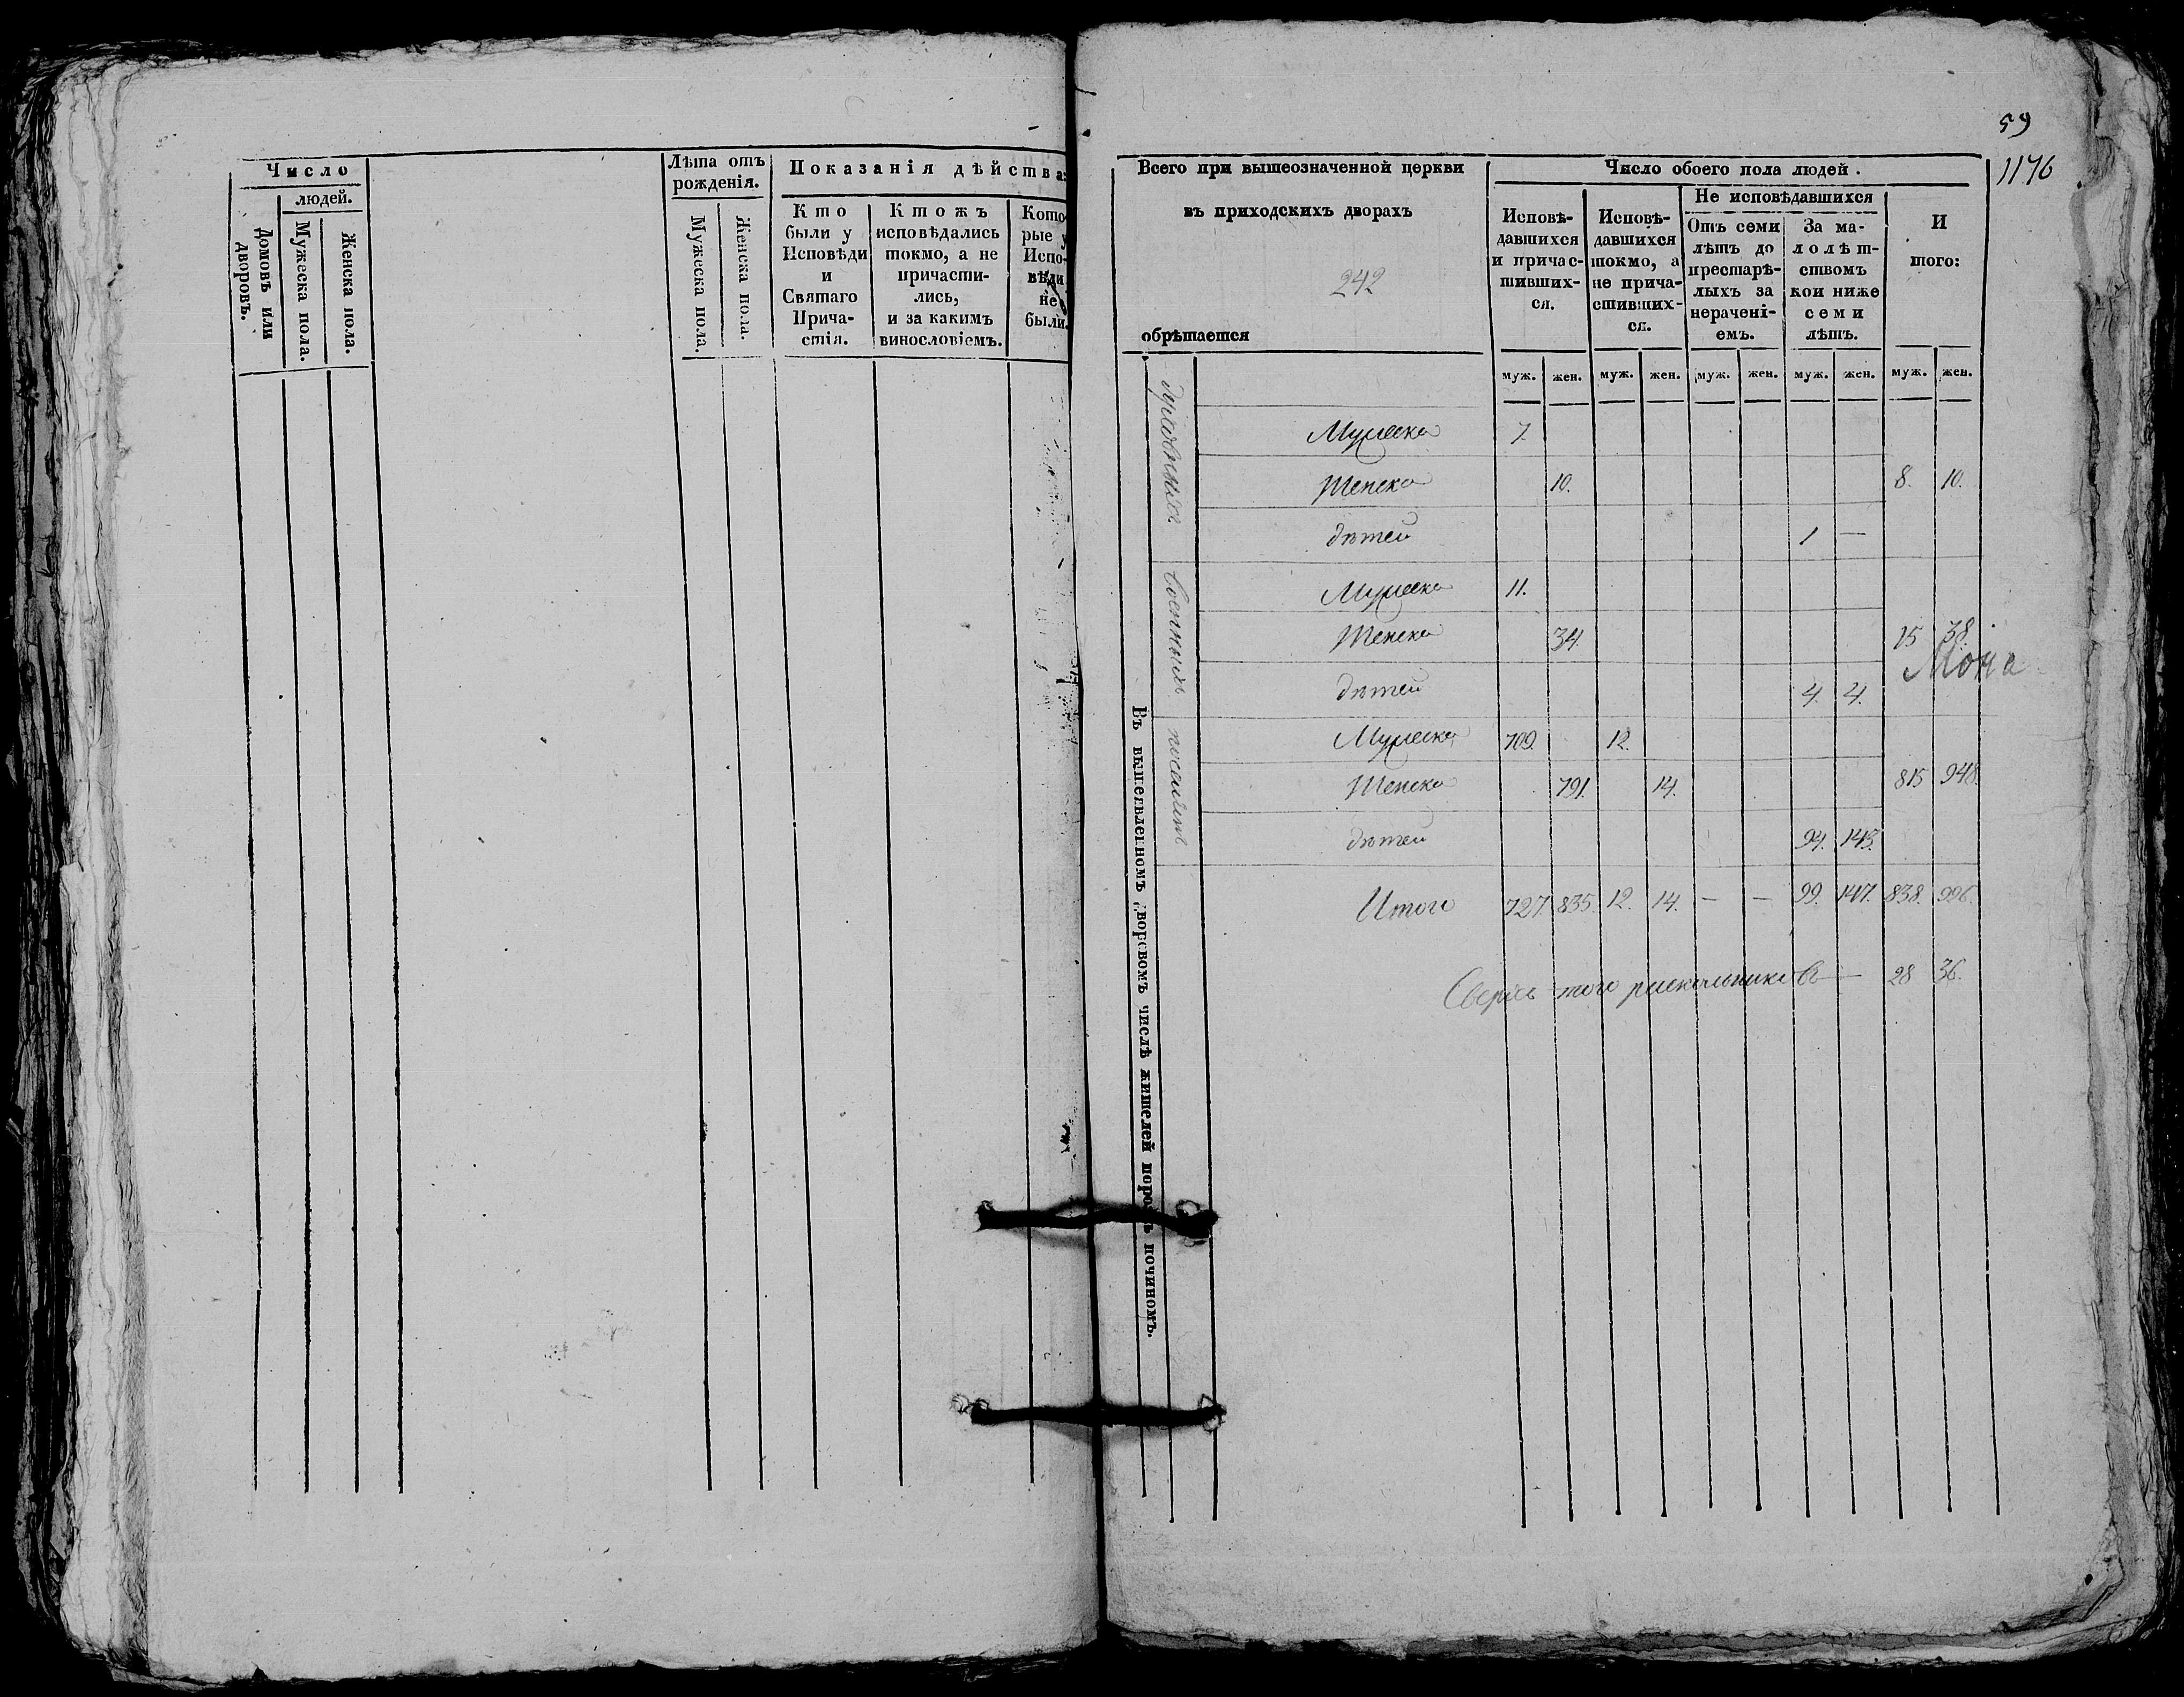 Число
людей.
Домовъ или дворовъ.
Мужеска пола.
Женска пола.
Лѣта отъ рожденія.
Мужеска пола.
Женска пола.
Показанія дѣйства
Кто были у Исповѣди и Святаго Причастія.
Ктожъ исповѣдались токмо, а не причастились, и за какимъ винословіемъ.
Которые у Исповѣди не были.
59
1176
Всего при вышеозначенной церкви
въ приходскихъ дворахъ
242
обрѣтается
Число обоего пола людей.
Исповѣдавшихся и причастившихся.
Исповѣдавшихся токмо, а не причастившихся.
Не исповѣдавшихся
Отъ семи лѣтъ до престарѣлыхъ за нераченіемъ.
За малолѣтствомъ кои ниже семи лѣтъ.
И того:
муж. жен. муж. жен. муж. жен. муж. жен. муж. жен.
Въ вышеявленномъ дворовомъ числѣ жителей порознь по чиномъ.
духовныхъ
Мужеска 7.
Женска 10. 8. 10.
дѣтей 1 —
военныхъ
Мужеска 11.
Женска 34. 15 38.
Моча
дѣтей 4. 4.
Мужеска 709. 12.
Женска 791. 14. 815 948.
дѣтей 94. 143.
Итого 727. 835. 12. 14. — — 99. 147. 838. 996.
Сверхъ того раскольниковъ — 28 36.